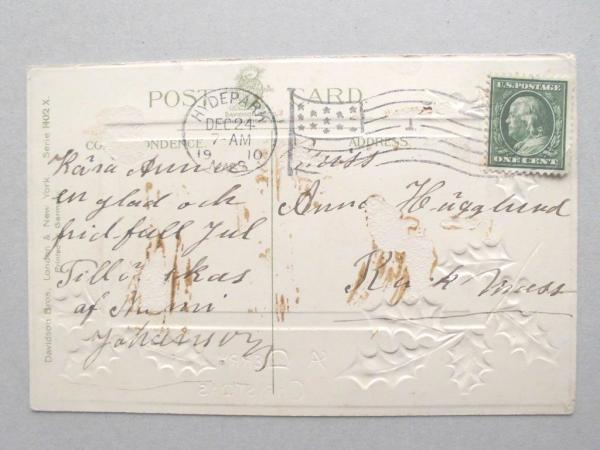 POST CARD
DAVIDSON
CORRESPONDENCE.
ADDRESS.
HYDE PARK
DEC 24
7-AM
1910
MASS.
1
U.S. POSTAGE
ONE CENT
Davidson Bros., London & New York. Serie 1402 X.
Kära Anna
en glad och
fridfull Jul
Tillönskas
af Mimmi
Johanson
Miss
Anna Hägglund
Mass
A